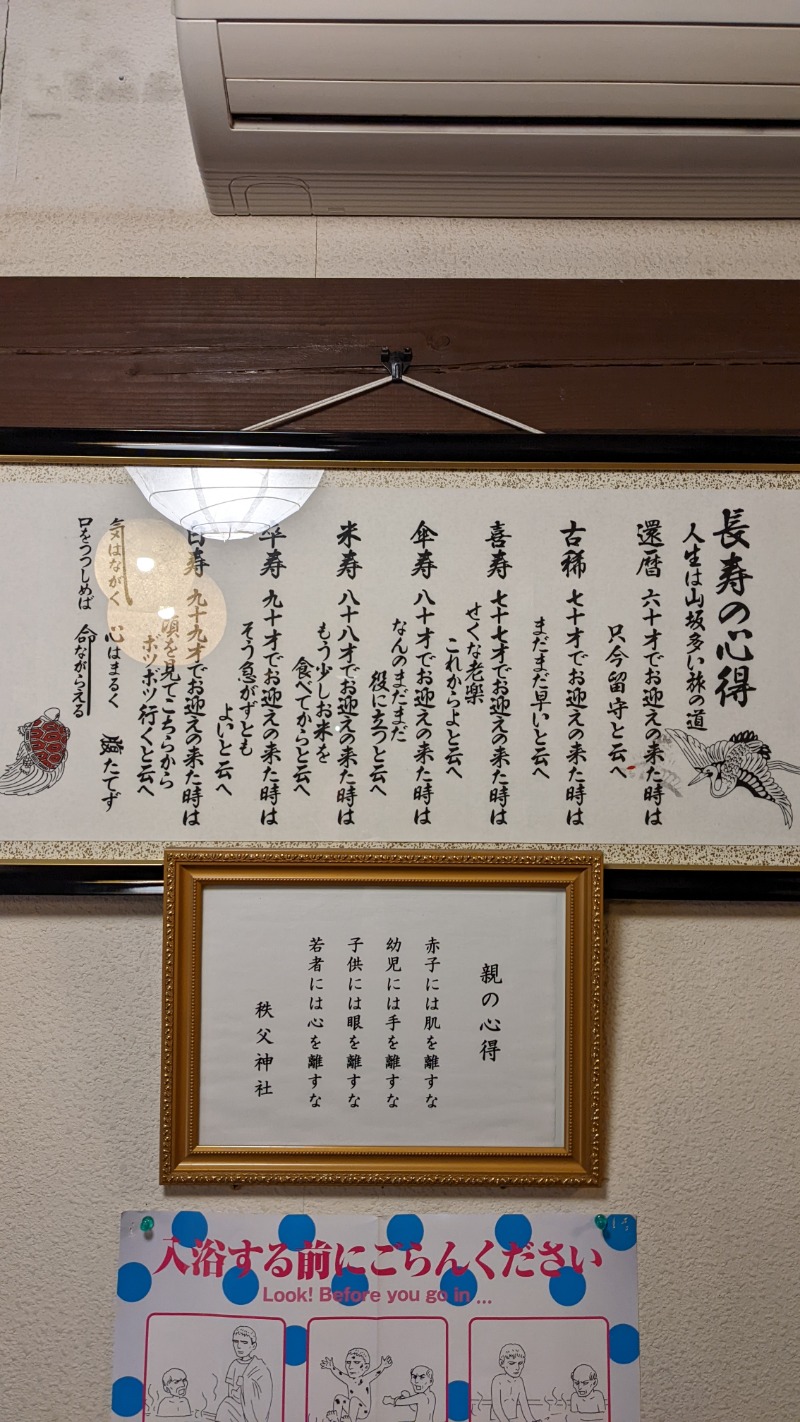 長寿の心得
人生は山坂多い旅の道
還暦 六十才でお迎えの来た時は
只今留守と云へ
古稀 七十才でお迎えの来た時は
まだまだ早いと云へ
喜寿 七十七才でお迎えの来た時は
せくな老楽
これからよと云へ
傘寿 八十才でお迎えの来た時は
なんのまだまだ
役に立つと云へ
米寿 八十八才でお迎えの来た時は
もう少しお米を
食べてからと云へ
卒寿 九十才でお迎えの来た時は
そう急がずとも
よいと云へ
白寿 九十九才でお迎えの来た時は
頃を見てこちらから
ボツボツ行くと云へ
気はながく 心はまるく 腹たてず
口をつつしめば 命ながらえる
親の心得
赤子には肌を離すな
幼児には手を離すな
子供には眼を離すな
若者には心を離すな
秩父神社
入浴する前にごらんください
Look! Before you go in ...